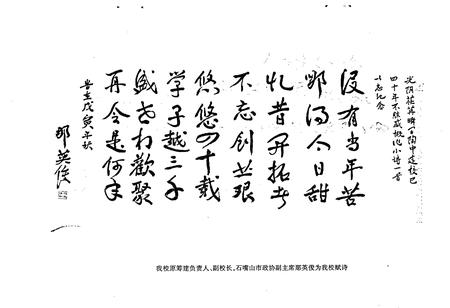 光阴荏苒 中建校已
四十年不胜感慨作小诗一首
以志纪念
没有当年苦
那得今日甜
忆昔开拓者
不忘创业艰
悠悠四十载
学子越三千
盛世相歡聚
再会是何年
戊寅年秋
那英俊
我校原筹建负责人、副校长,石嘴山市政协副主席那英俊为我校赋诗